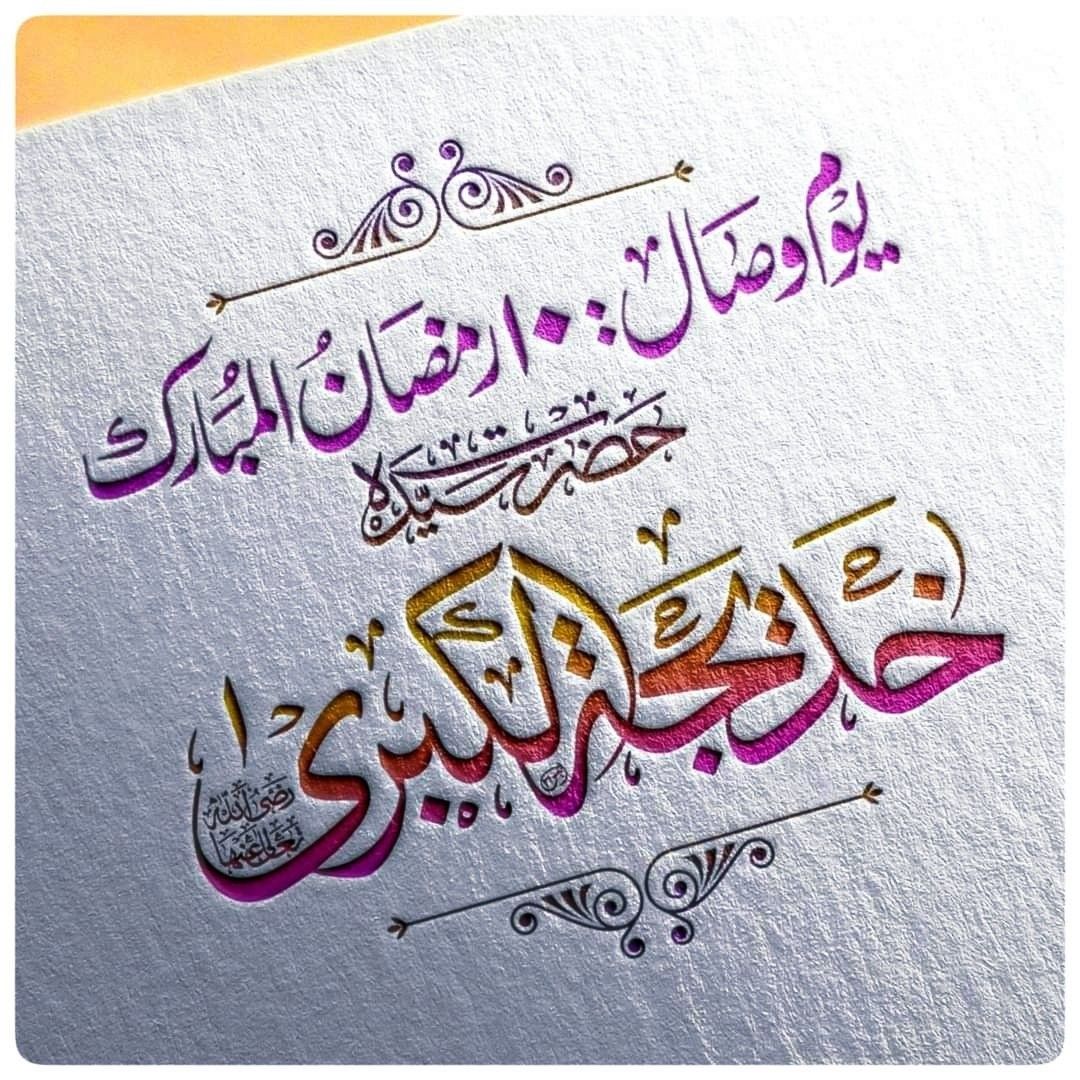 یوم وصال: ۱۰ رمضان المبارک
حضرت سیدہ
خدیجة الکبریٰ
رضی اللہ تعالیٰ عنہا